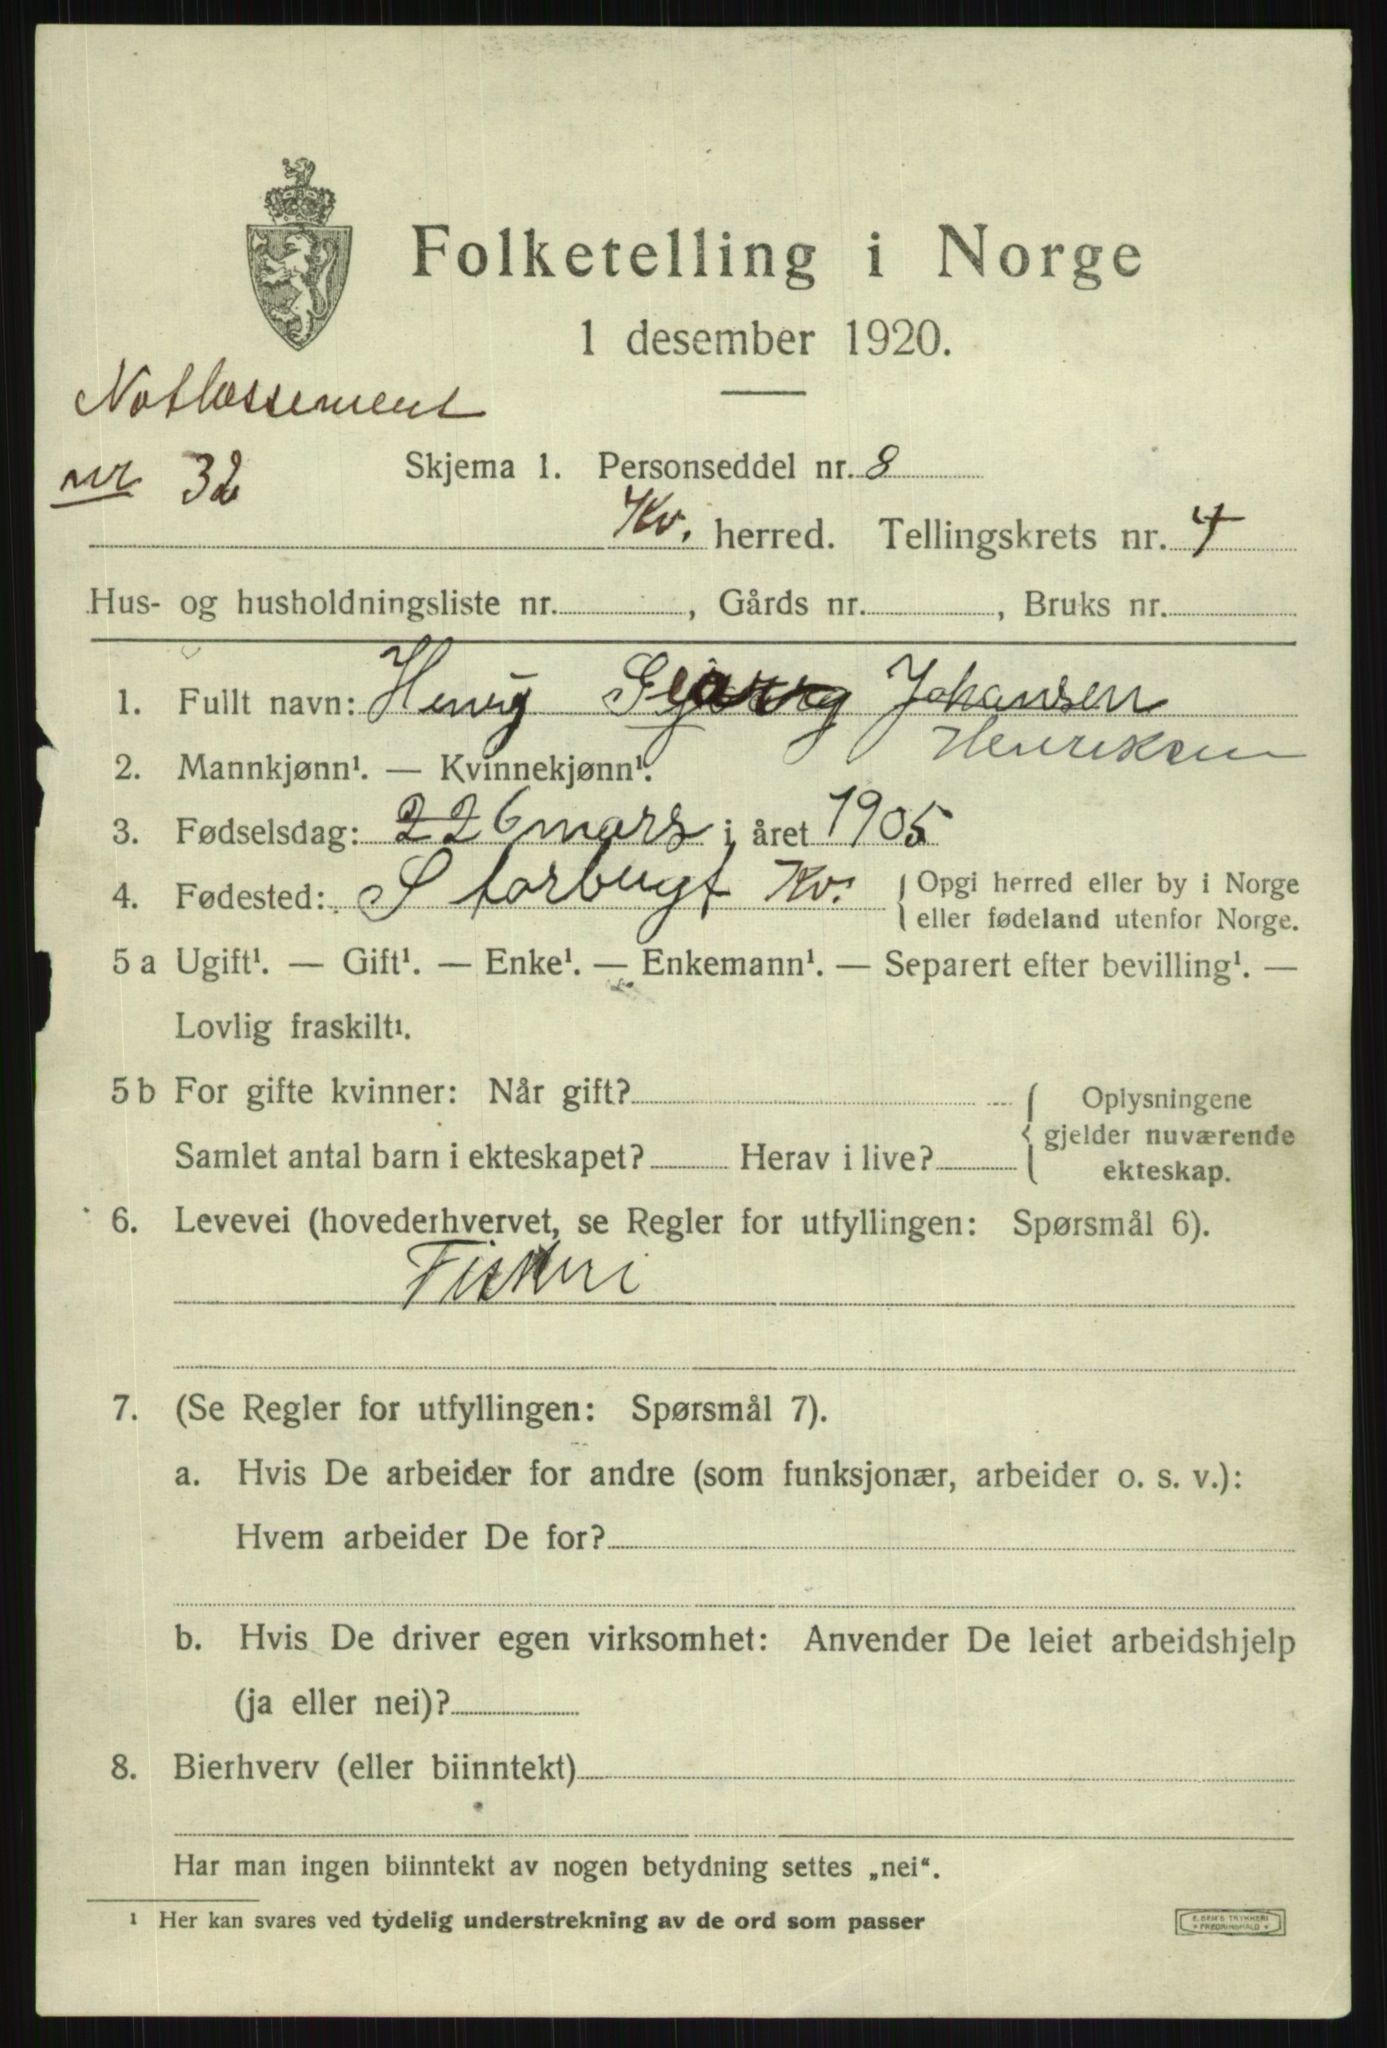 Folketelling i Norge
1 desember 1920.
Notlassement
nr 32
Skjema 1. Personseddel nr. 8
Kv. herred. Tellingskrets nr. 4
Hus- og husholdningsliste nr. , Gårds nr. , Bruks nr.
1. Fullt navn: Henrij Johansen
Henriksen
2. Mannkjønn¹. — Kvinnekjønn¹.
3. Fødselsdag: 226 mars i året 1905
4. Fødested: Storbugt Kv. { Opgi herred eller by i Norge
eller fødeland utenfor Norge.
5 a Ugift¹. — Gift¹. — Enke¹. — Enkemann¹. — Separert efter bevilling¹. —
Lovlig fraskilt¹.
5 b For gifte kvinner: Når gift? { Oplysningene
gjelder nuværende
Samlet antal barn i ekteskapet? Herav i live? ekteskap.
6. Levevei (hovederhvervet, se Regler for utfyllingen: Spørsmål 6).
Fiskeri
7. (Se Regler for utfyllingen: Spørsmål 7).
a. Hvis De arbeider for andre (som funksjonær, arbeider o. s. v.):
Hvem arbeider De for?
b. Hvis De driver egen virksomhet: Anvender De leiet arbeidshjelp
(ja eller nei)?
8. Bierhverv (eller biinntekt)
Har man ingen biinntekt av nogen betydning settes „nei“.
¹ Her kan svares ved tydelig understrekning av de ord som passer
E. SEM'S TRYKKERI
FREDRIKSHALD